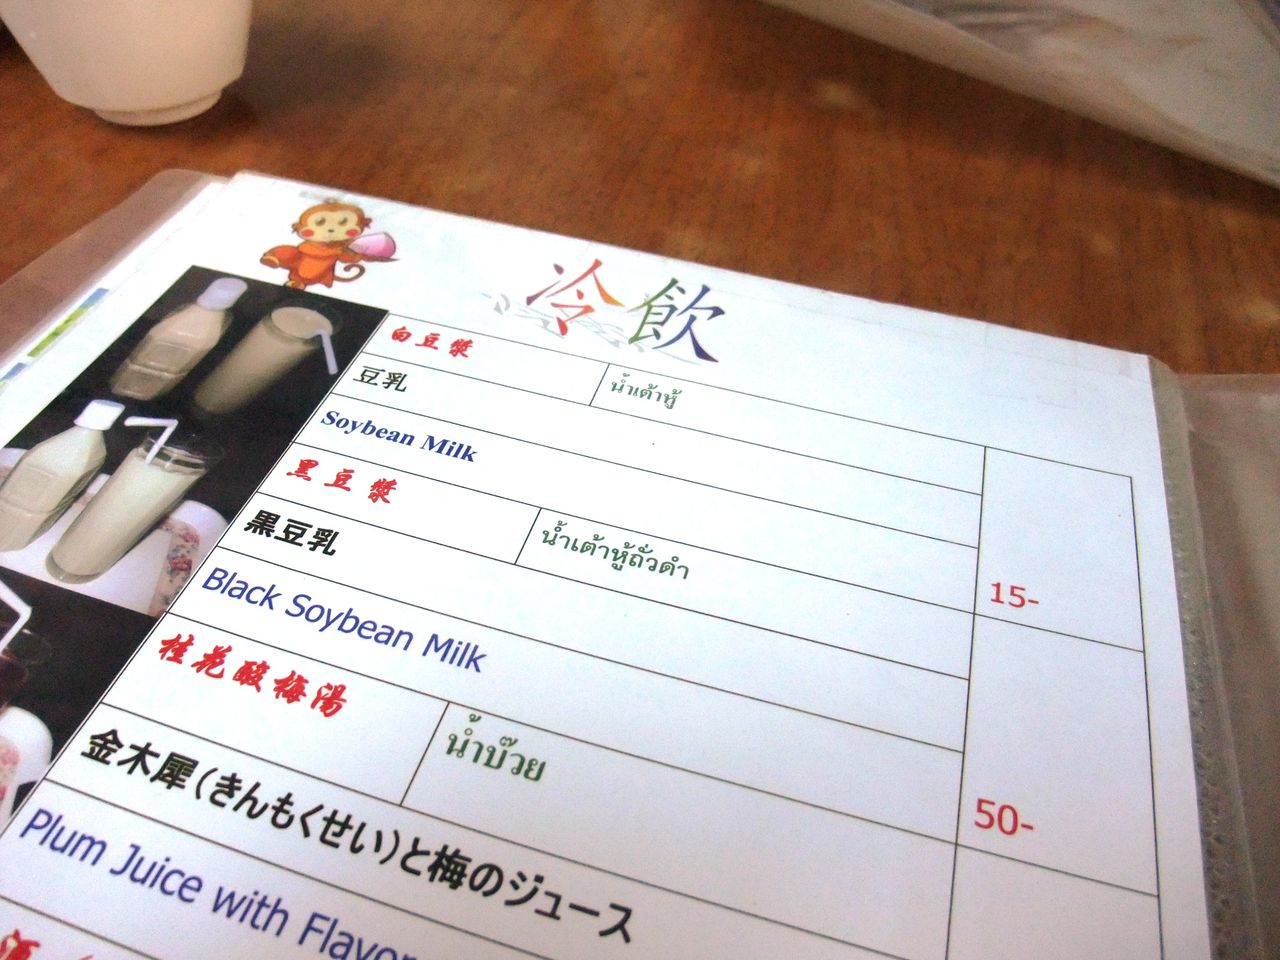 冷飲
白豆漿
豆乳
น้ำเต้าหู้
Soybean Milk
15-
黑豆漿
黒豆乳
น้ำเต้าหู้ถั่วดำ
Black Soybean Milk
50-
桂花酸梅湯
金木犀(きんもくせい)と梅のジュース
น้ำบ๊วย
Plum Juice with Flavor